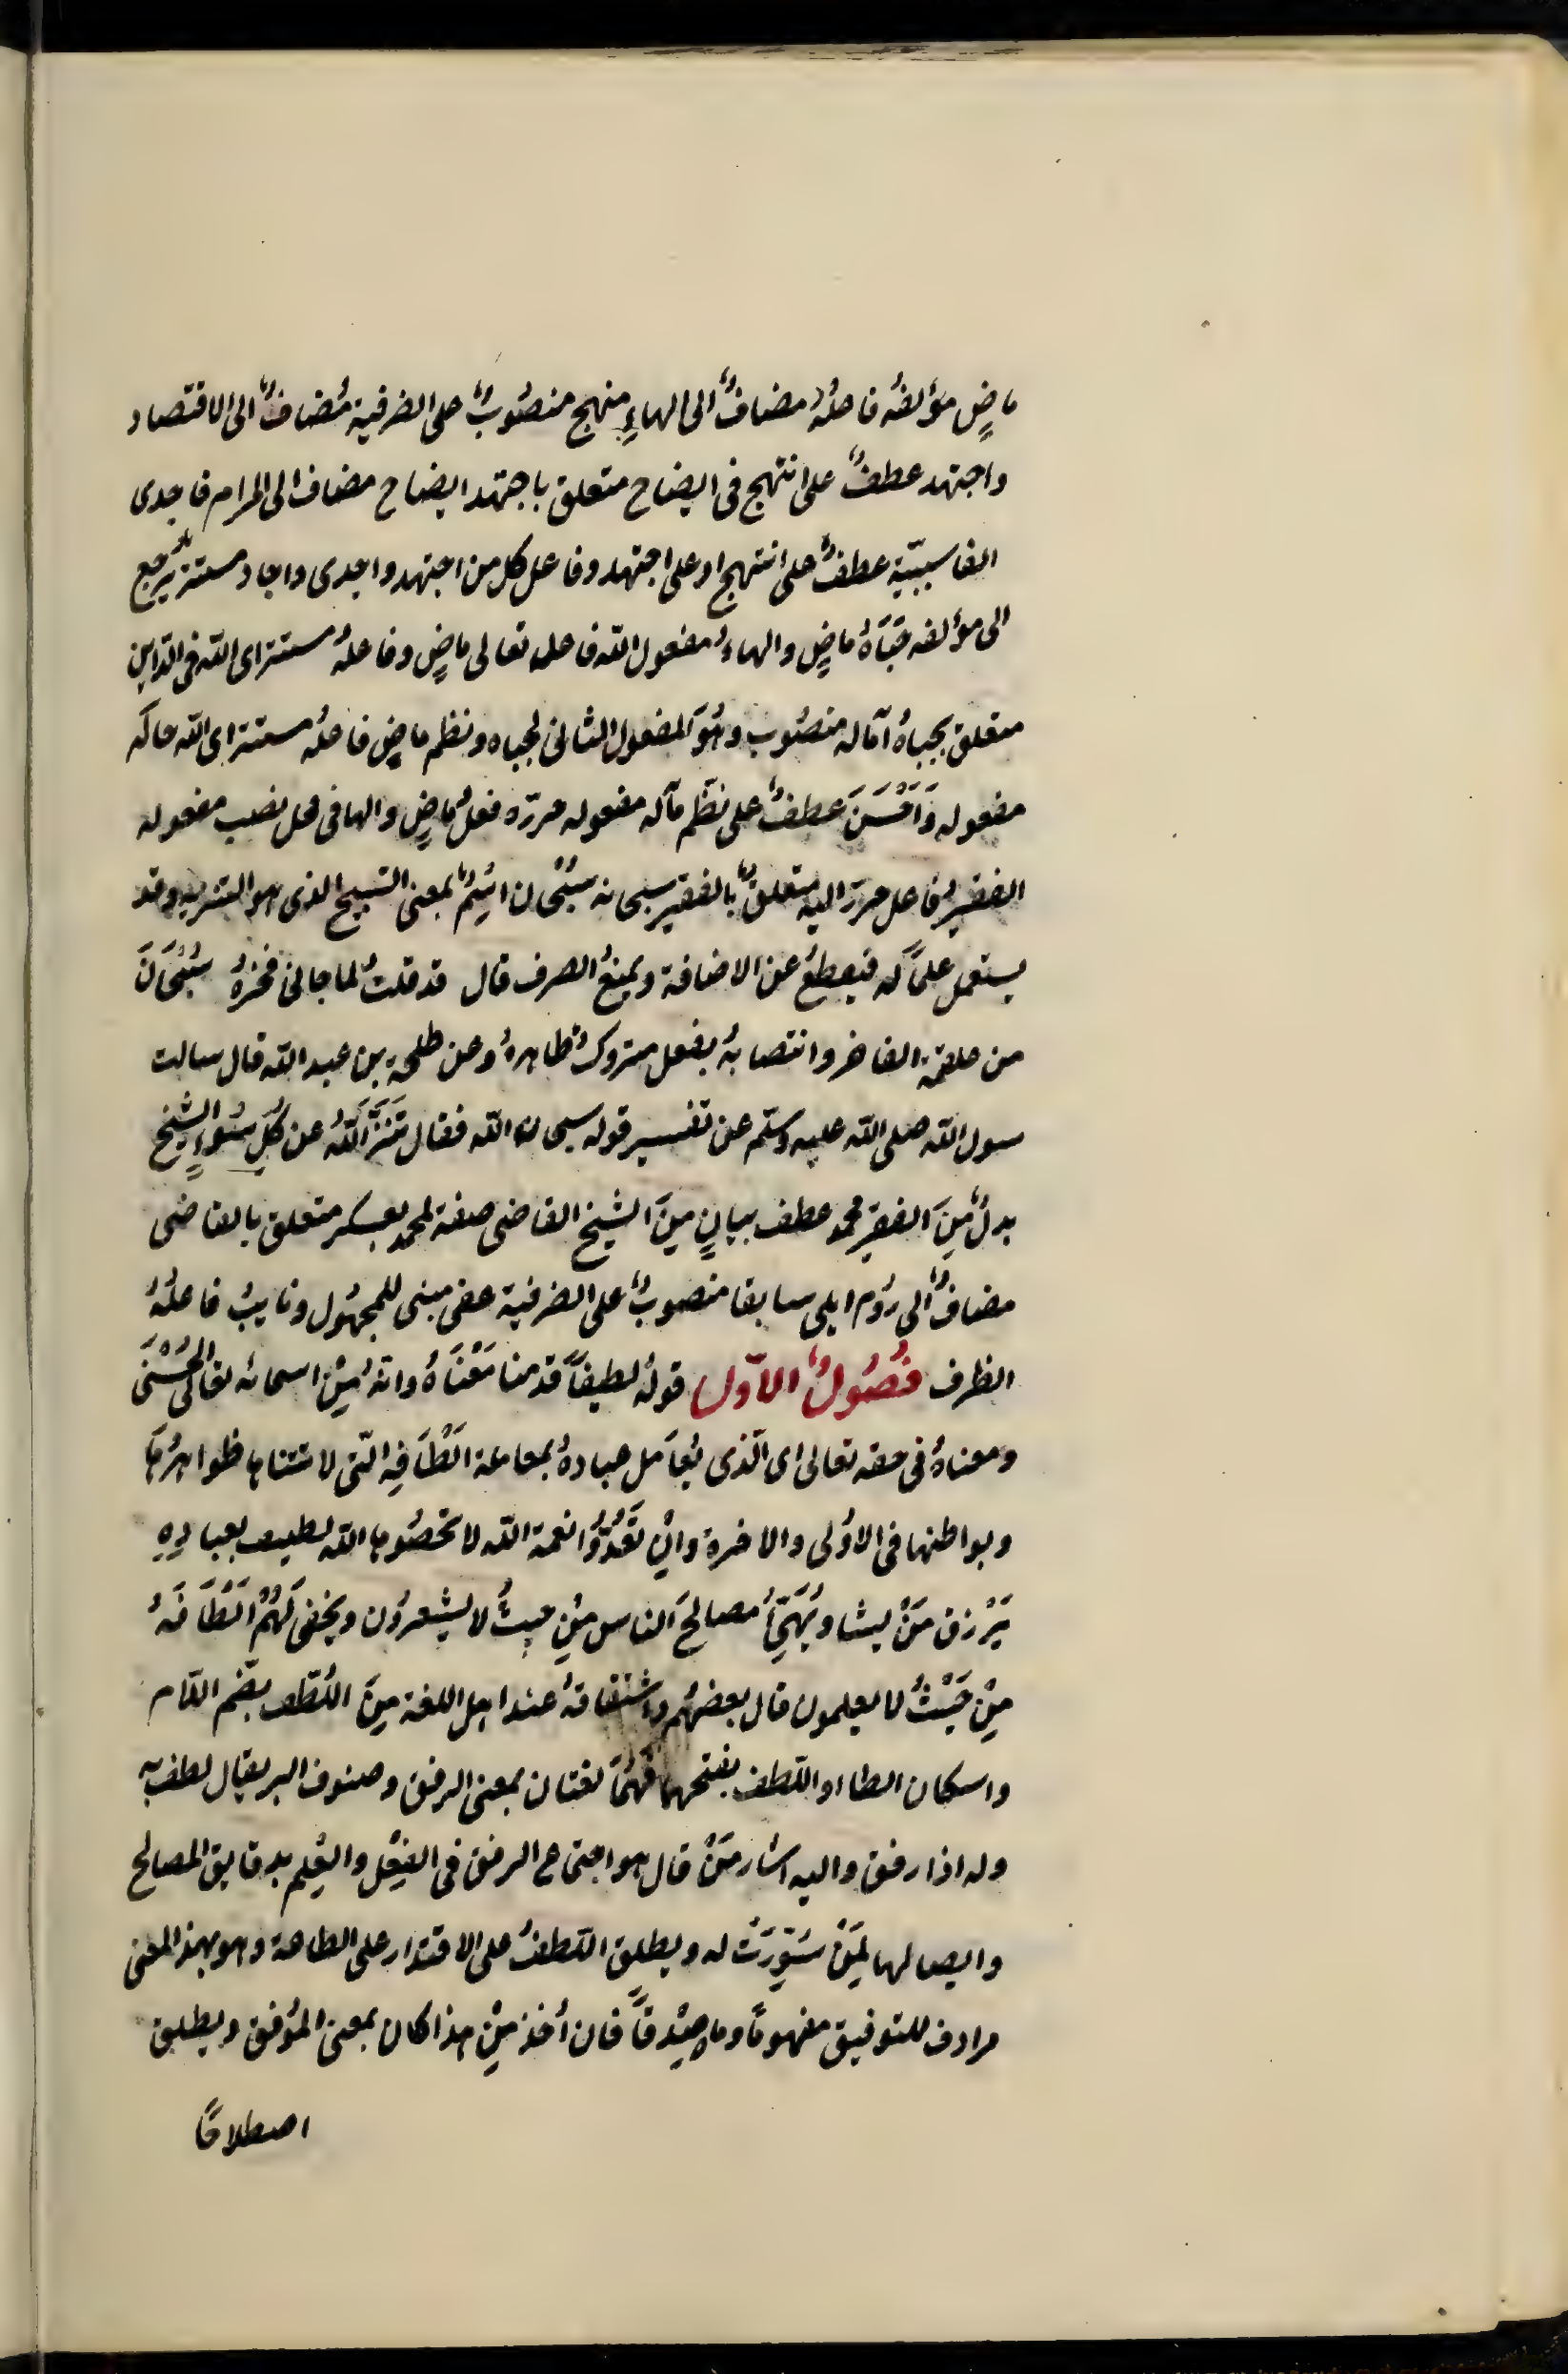 ماضٍ مؤلفهُ فاعلهُ مضافٌ الى الهاءِ منهج منصُوبٌ على الضرفية مُضافٌ الى الاقتصاد
واجتهد عطفٌ على انتهج فى ايضاح متعلق باجتهد ايضاح مضاف الى المرام فاجدى
الفا سببيّة عطفٌ على انتهج او على اجتهد وفاعل كل من اجتهد واجدى واجاد مستتر يرجع
الى مؤلفه حَبَاهُ ماضٍ والهاءُ مفعول الله فاعله تعالى ماضٍ وفاعلهُ مستتر اى الله فى الدارين
متعلق بحباهُ آماله منصُوب وهُوَ المفعول الثانى لحباه ونظم ماضٍ فاعلهُ مستتر اى الله حاله
مفعوله وَاَحْسَنَ عطفٌ على نظّم مآله مفعوله حرّره فعلٌ ماضٍ والها فى محل نصب مفعوله
الفقيرُ فاعل حرّر اليه متعلقٌ بالفقير سبحانه سُبْحان اسْمٌ بمعنى التسبيح الذى هو التنزيه وقد
يستعمل علمًا له فيقطعُ عن الاضافة ويمنعُ الصرف قال قد قلتُ لما جانى فخرُهُ سُبْحَانَ
من علقمة الفاخر وانتصابهُ بفعل متروك ظاهرهُ وعن طلحة بن عبد الله قال سالت
سول الله صلى الله عليه وسلّم عن تفسير قوله سبحان الله فقال تَنَزَّهَ اللّهُ عن كُلِّ سُوءٍ الشيخ
بدلٌ مِنَ الفقير محمد عطف بيانٍ مِنَ الشيخ القاضى صفة لمحمد بعسكر متعلق بالقاضى
مضافٌ الى رُوم ايلى سابقا منصوبٌ على الضرفية عفى مبنى للمجهُول ونايبُ فاعلهُ
الظرف فُصُولُ الاوّل قولهُ لطيفًا قدمنا مَعْنَاهُ وانّهُ مِنْ اسمائه تعالى الحُسْنَى
ومعناهُ فى حقه تعالى اى الّذى يُعَامل عبادهُ بمعاملة اَلْطَافِه الّتى لا تتناها ظواهرُهَا
وبواطنها فى الاوُلى والاخرة وانِ تَعُدُّوُا نعمة الله لا تحصُوها الله لطيف بعبادِهِ
يَرْزق مَنْ يشا ويُهَيِّأُ مصالحَ الناس مِنْ حيثُ لا يشعرُون ويخفى لَهُمْ اَلْطَافَهُ
مِنْ حَيْثُ لا يعلمون قال بعضهُم واشتقاقهُ عند اهل اللغة مِنَ اللُطف بضّم اللام
واسكان الطا او اللطف بفتحهما فَهُمَا لغتان بمعنى الرفق وصنوف البر يقال لطف به
وله اذا رفق واليه اشار مَنْ قال هو اجتماع الرفق فى الفِعْل والعِلم بدقايق المصالح
وايصالها لِمَنْ سُيِّرَتْ له ويطلق اللطفُ على الاقتدار على الطاعة وهو بهذا المعنى
مرادف للتوفيق مفهومًا وماصِدْقًا فان أُخذ مِنْ هذا كان بمعنى المُوفق ويطلق
اصطلاحًا